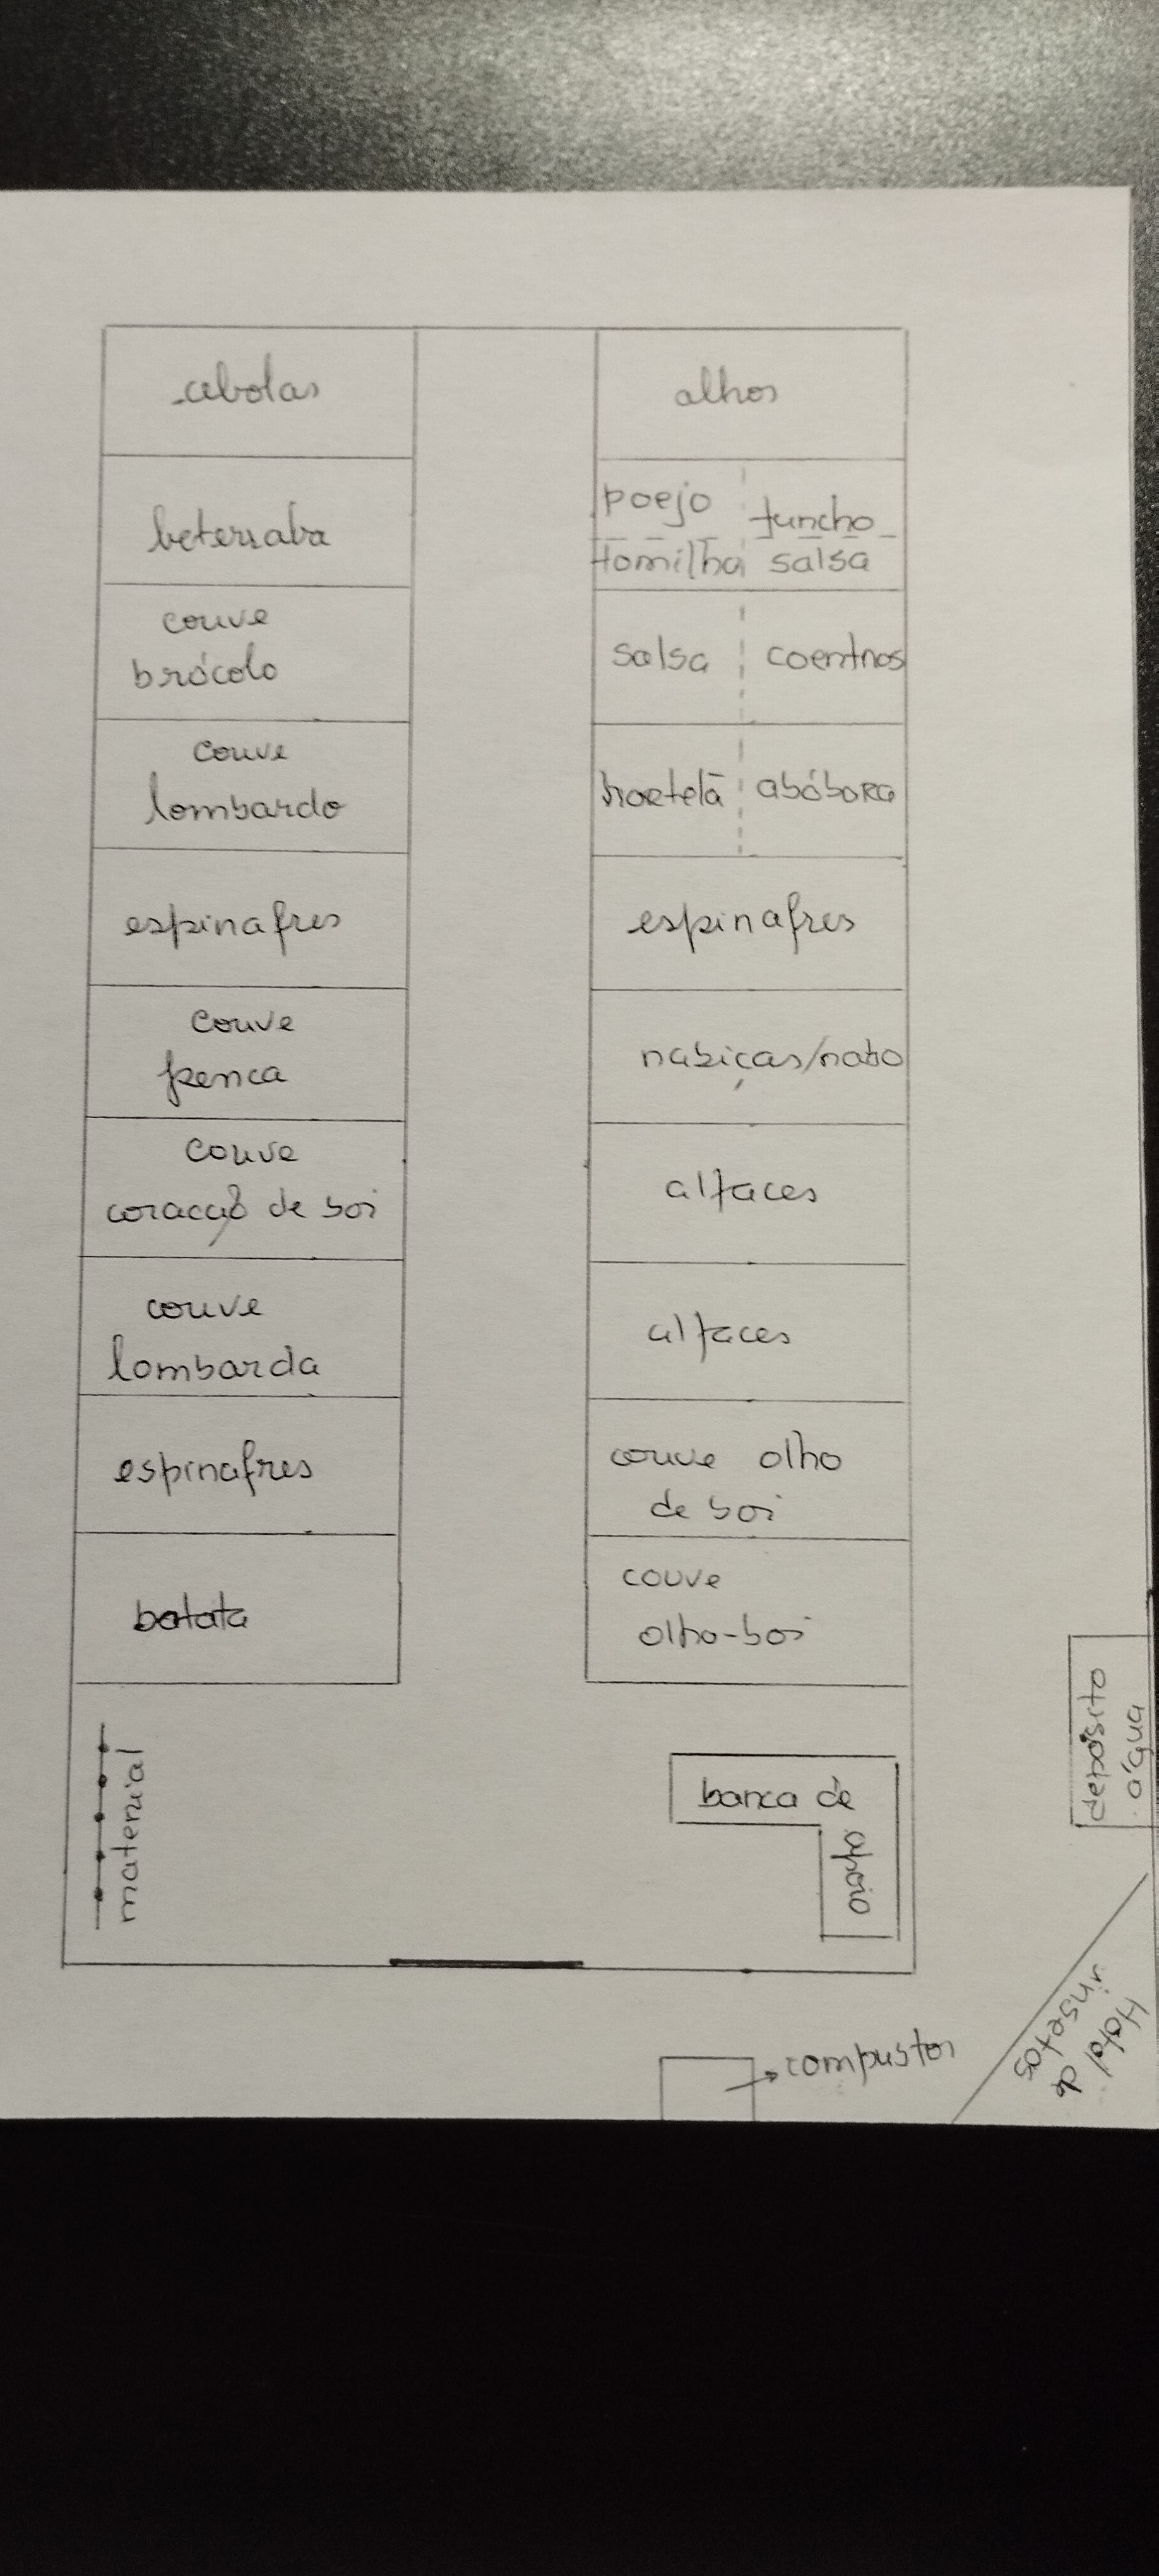 cebolas
beterraba
couve
brócolo
couve
lombardo
espinafres
couve
penca
couve
coração de boi
couve
lombarda
espinafres
batata
material
alhos
poejo funcho
tomilho salsa
salsa coentros
hortelã abóbora
espinafres
nabiças/nabo
alfaces
alfaces
couve olho
de boi
couve
olho-boi
banca de
apoio
depósito
água
Hotel de
insetos
compustor